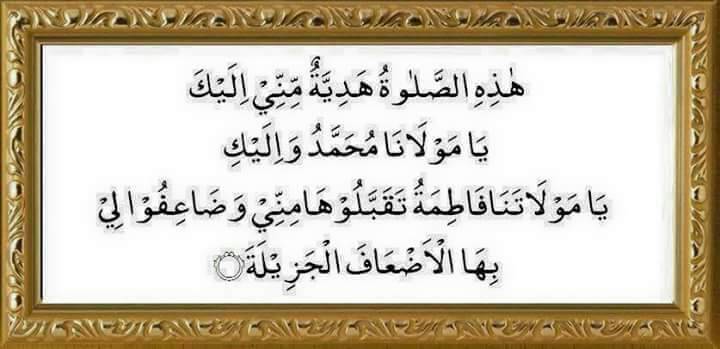 هٰذِهِ الصَّلٰوةُ هَدِيَّةٌ مِّنِّيْ اِلَيْكَ
يَا مَوْلَانَا مُحَمَّدُ وَاِلَيْكِ
يَا مَوْلَاتَنَا فَاطِمَةُ تَقَبَّلُوْهَا مِنِّيْ وَضَاعِفُوْا لِيْ
بِهَا الْاَضْعَافَ الْجَزِيْلَةَ